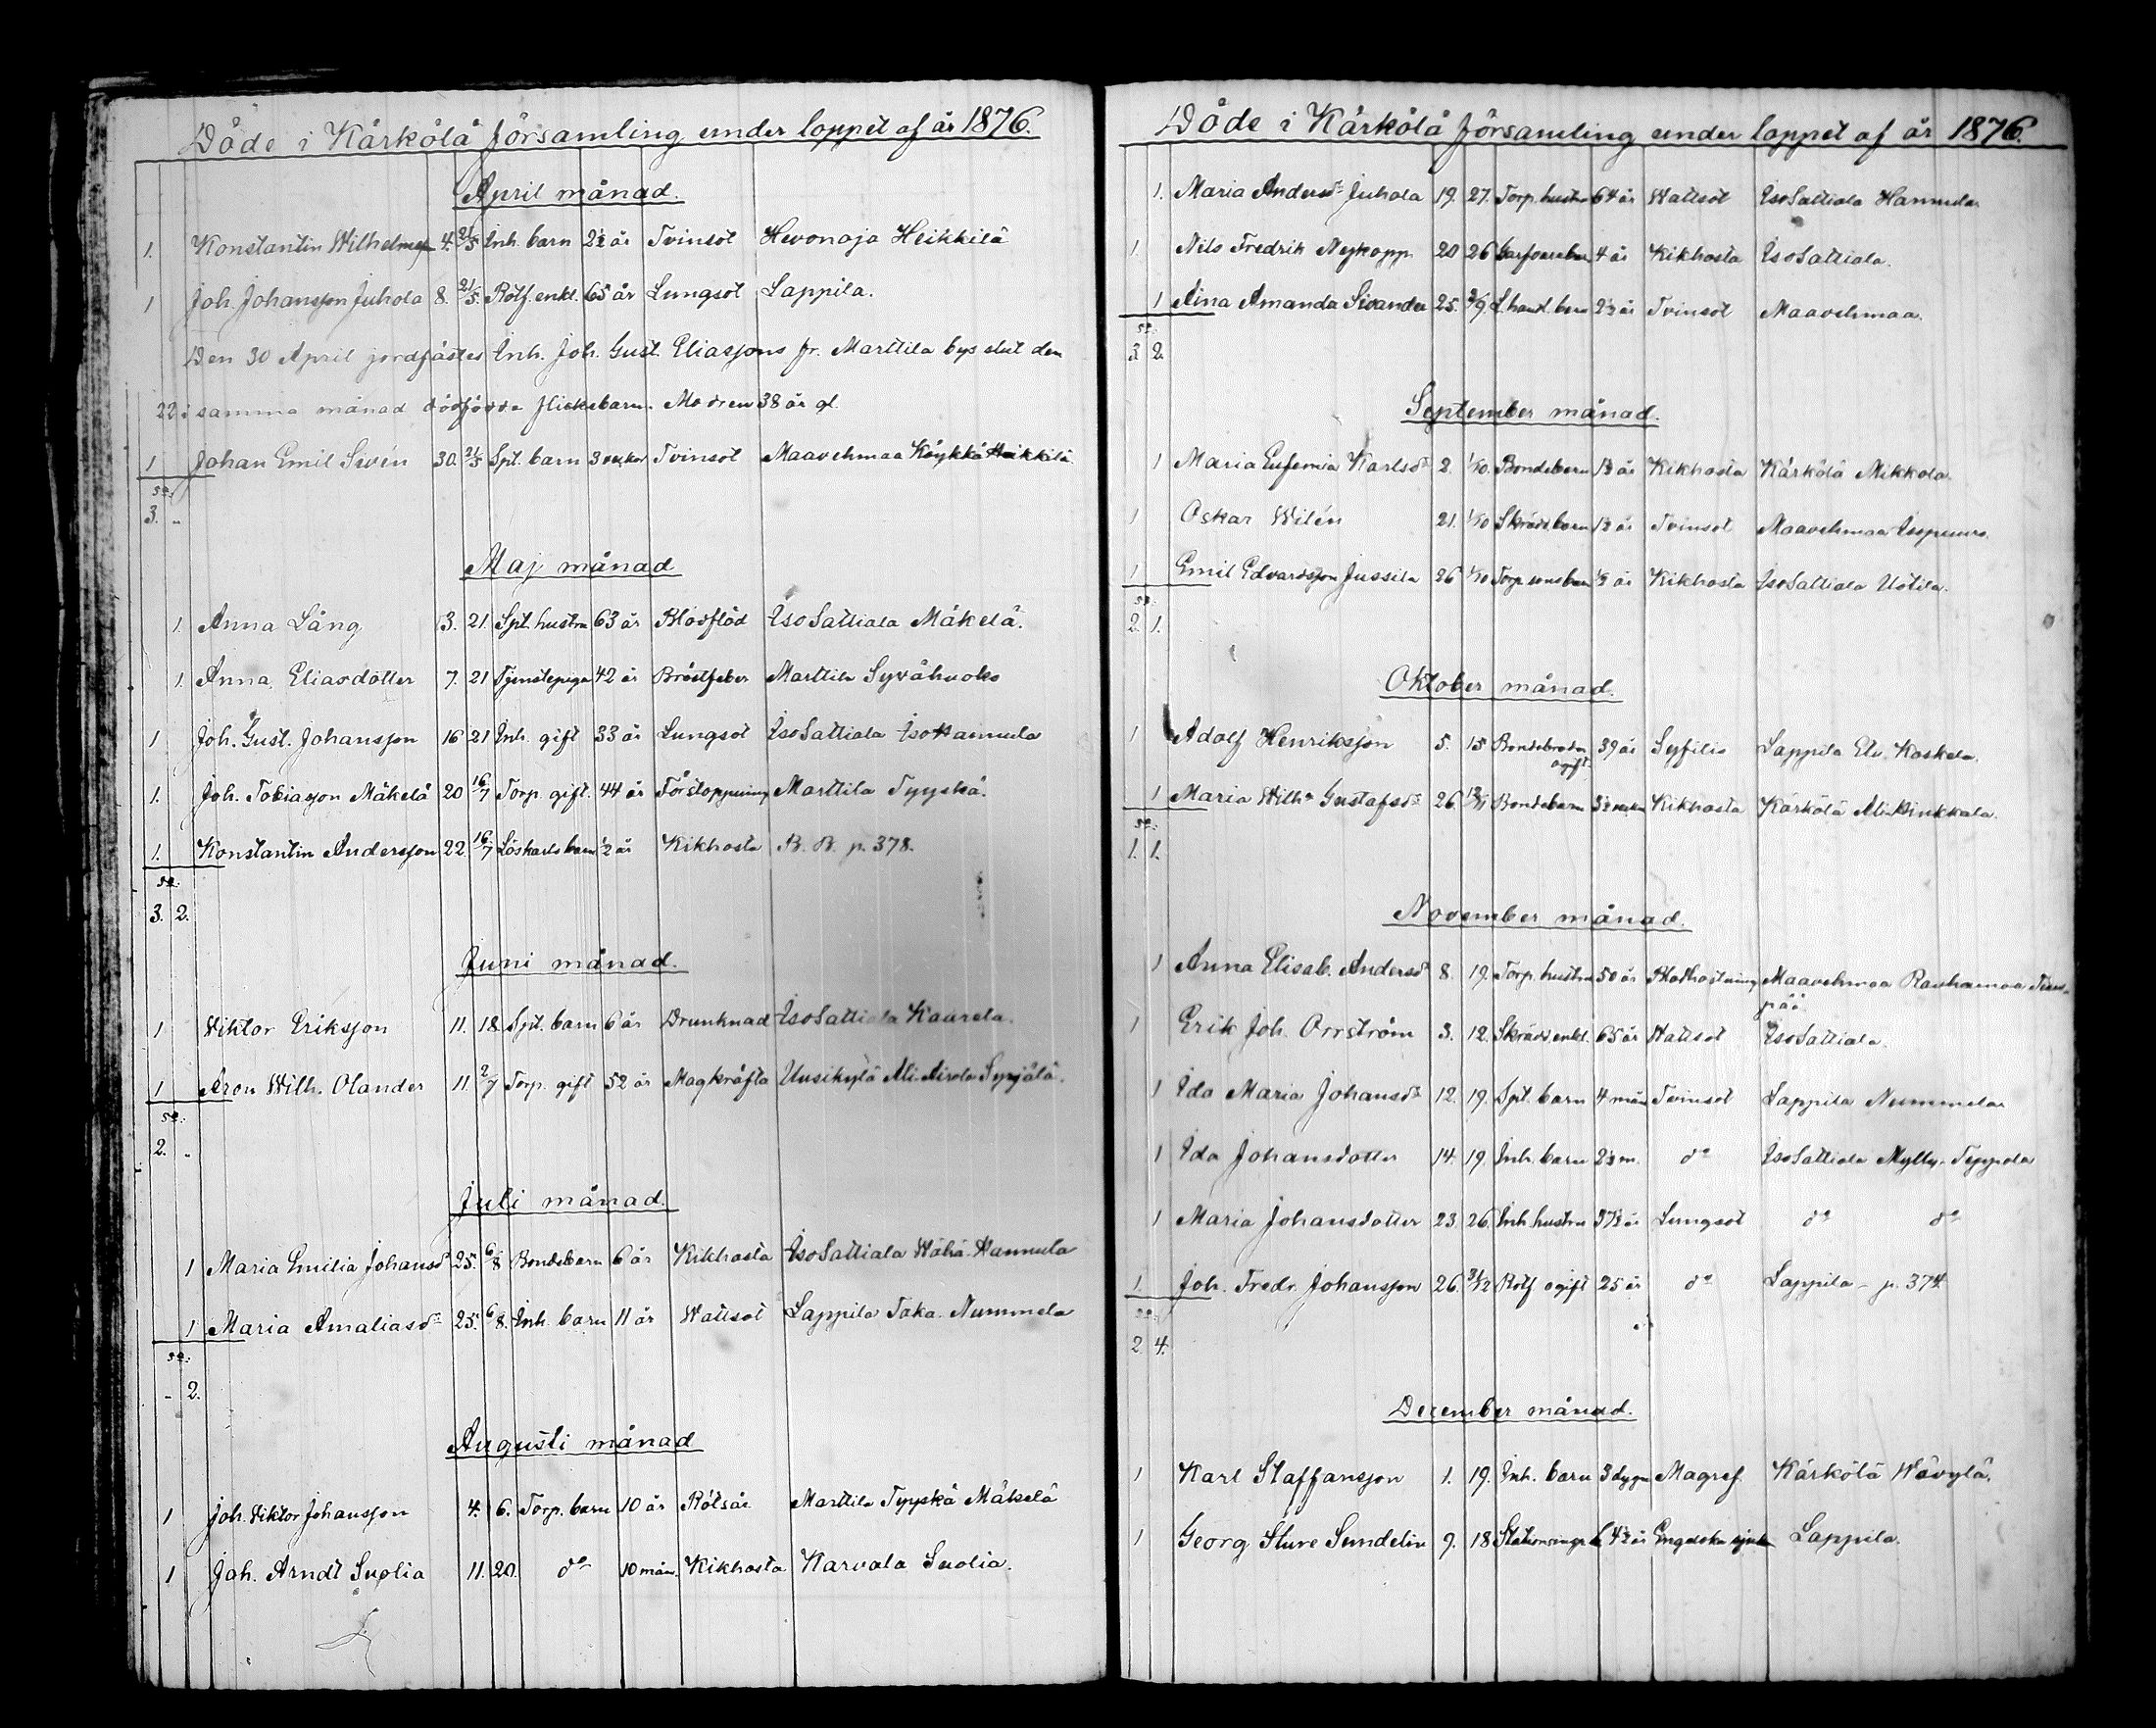 Döde i Kärkölä församling under loppet af år 1876.
April månad.
1. Konstantin Wilhelmsson 4. 21/5 Inh. barn 2½ år Tvinsot Hevonoja Heikkilä
1 Joh. Johansson Juhola 8. 21/5. Rotf. enkl. 65 år Lungsot Lappila.
Den 30 April jordfästes Inh. Joh. Gust. Eliassons fr. Marttila bys slut den
22 i samma månad dödfödda flickebarn. Modren 38 år gl.
1 Johan Emil Sivén 30. 21/5 Spt. barn 3 veckor Tvinsot Maavehmaa Köykkä Heikkilä
Sa:
3. -
Maj månad
1. Anna Lång 3. 21. Spt. hustru 63 år Blodflöd IsoSattiala Mäkelä.
1. Anna Eliasdotter 7. 21 Tjenstepiga 42 år Bröstfeber Marttila Syvähuoko
1 Joh. Gust. Johansson 16 21 Inh. gift 33 år Lungsot IsoSattiala IsoHannula
1. Joh. Tobiasson Mäkelä 20 16/7 Torp. gift. 44 år Förstoppning Marttila Tyyskä.
1. Konstantin Andersson 22 16/7 Löskarls barn ½ år Kikhosta B. B. p. 378.
Sa:
3. 2.
Juni månad.
1 Viktor Eriksson 11. 18. Spt. barn 6 år Drunknad IsoSattiala Kaurela.
1 Aron Wilh. Olander 11. 2/7 Torp. gift 52 år Magkräfta Uusikylä Ali-Airola Syrjälä.
Sa:
2. -
Juli månad.
1 Maria Emilia Johansdr 25. 6/8 Bondebarn 6 år Kikhosta IsoSattiala Wähä-Hannula
1 Maria Amaliasdr 25. 6/8. Inh. barn 11 år Wattsot Lappila Taka-Nummela
Sa:
- 2.
Augusti månad
1 Joh. Viktor Johansson 4. 6. Torp. barn 10 år Rötsår Marttila Tyyskä Mäkelä
1 Joh. Arndt Suolia 11. 20. do 10 mån. Kikhosta Karvala Suolia.
Döde i Kärkölä församling under loppet af år 1876.
1. Maria Andersdr Juhola 19. 27. Torp. hustru 64 år Wattsot IsoSattiala Hannula
1. Nils Fredrik Nykopp 20 26 4 år Kikhosta IsoSattiala.
1 Aina Amanda Sivander 25. 3/9. L. hand. barn 2½ år Tvinsot Maavehmaa.
Sa:
3. 2.
September månad.
1 Maria Eufemia Karlsdr 2. 1/10. Bondebarn 1½ år Kikhosta Kärkölä Mikkola.
1 Oskar Wilén 21. 1/10 Skrädd. barn 1½ år Tvinsot Maavehmaa
1 Emil Edvardsson Jussila 26 1/10 Torp. sons barn ½ år Kikhosta IsoSattiala Uotila.
Sa:
2. 1.
Oktober månad.
1 Adolf Henriksson 5. 15 Bondebroder ogift 39 år Syfilis Lappila Koskela.
1 Maria Wilha Gustafsdr 26. 12/11 Bondebarn Kikhosta Kärkölä Ali-Hinkkala.
Sa:
1. 1.
November månad.
1 Anna Elisab. Andersdr 8. 19. Torp. hustru 50 år Blodhostning Maavehmaa Rauhamaa
pää.
1 Erik Joh. Orrström 3. 12. Skrädd. enkl. 65 år Wattsot IsoSattiala.
1 Ida Maria Johansdr 12. 19. Spt. barn 4 mån Tvinsot Lappila Nummela
1 Ida Johansdotter 14. 19. Inh. barn 2½ m. do IsoSattiala Mylly-Teppola
1 Maria Johansdotter 23. 26. Inh. hustru 37½ år Lungsot do do
1. Joh. Fredr. Johansson 26. 31/12 Rotf ogift 25 år do Lappila - p. 374.
Sa:
2. 4.
December månad.
1 Karl Staffansson 1. 19. Inh. barn 3 dygn Magref Kärkölä Wävylä.
1 Georg Sture Sundelin 9. 18 4½ år Engelska sjukan Lappila.